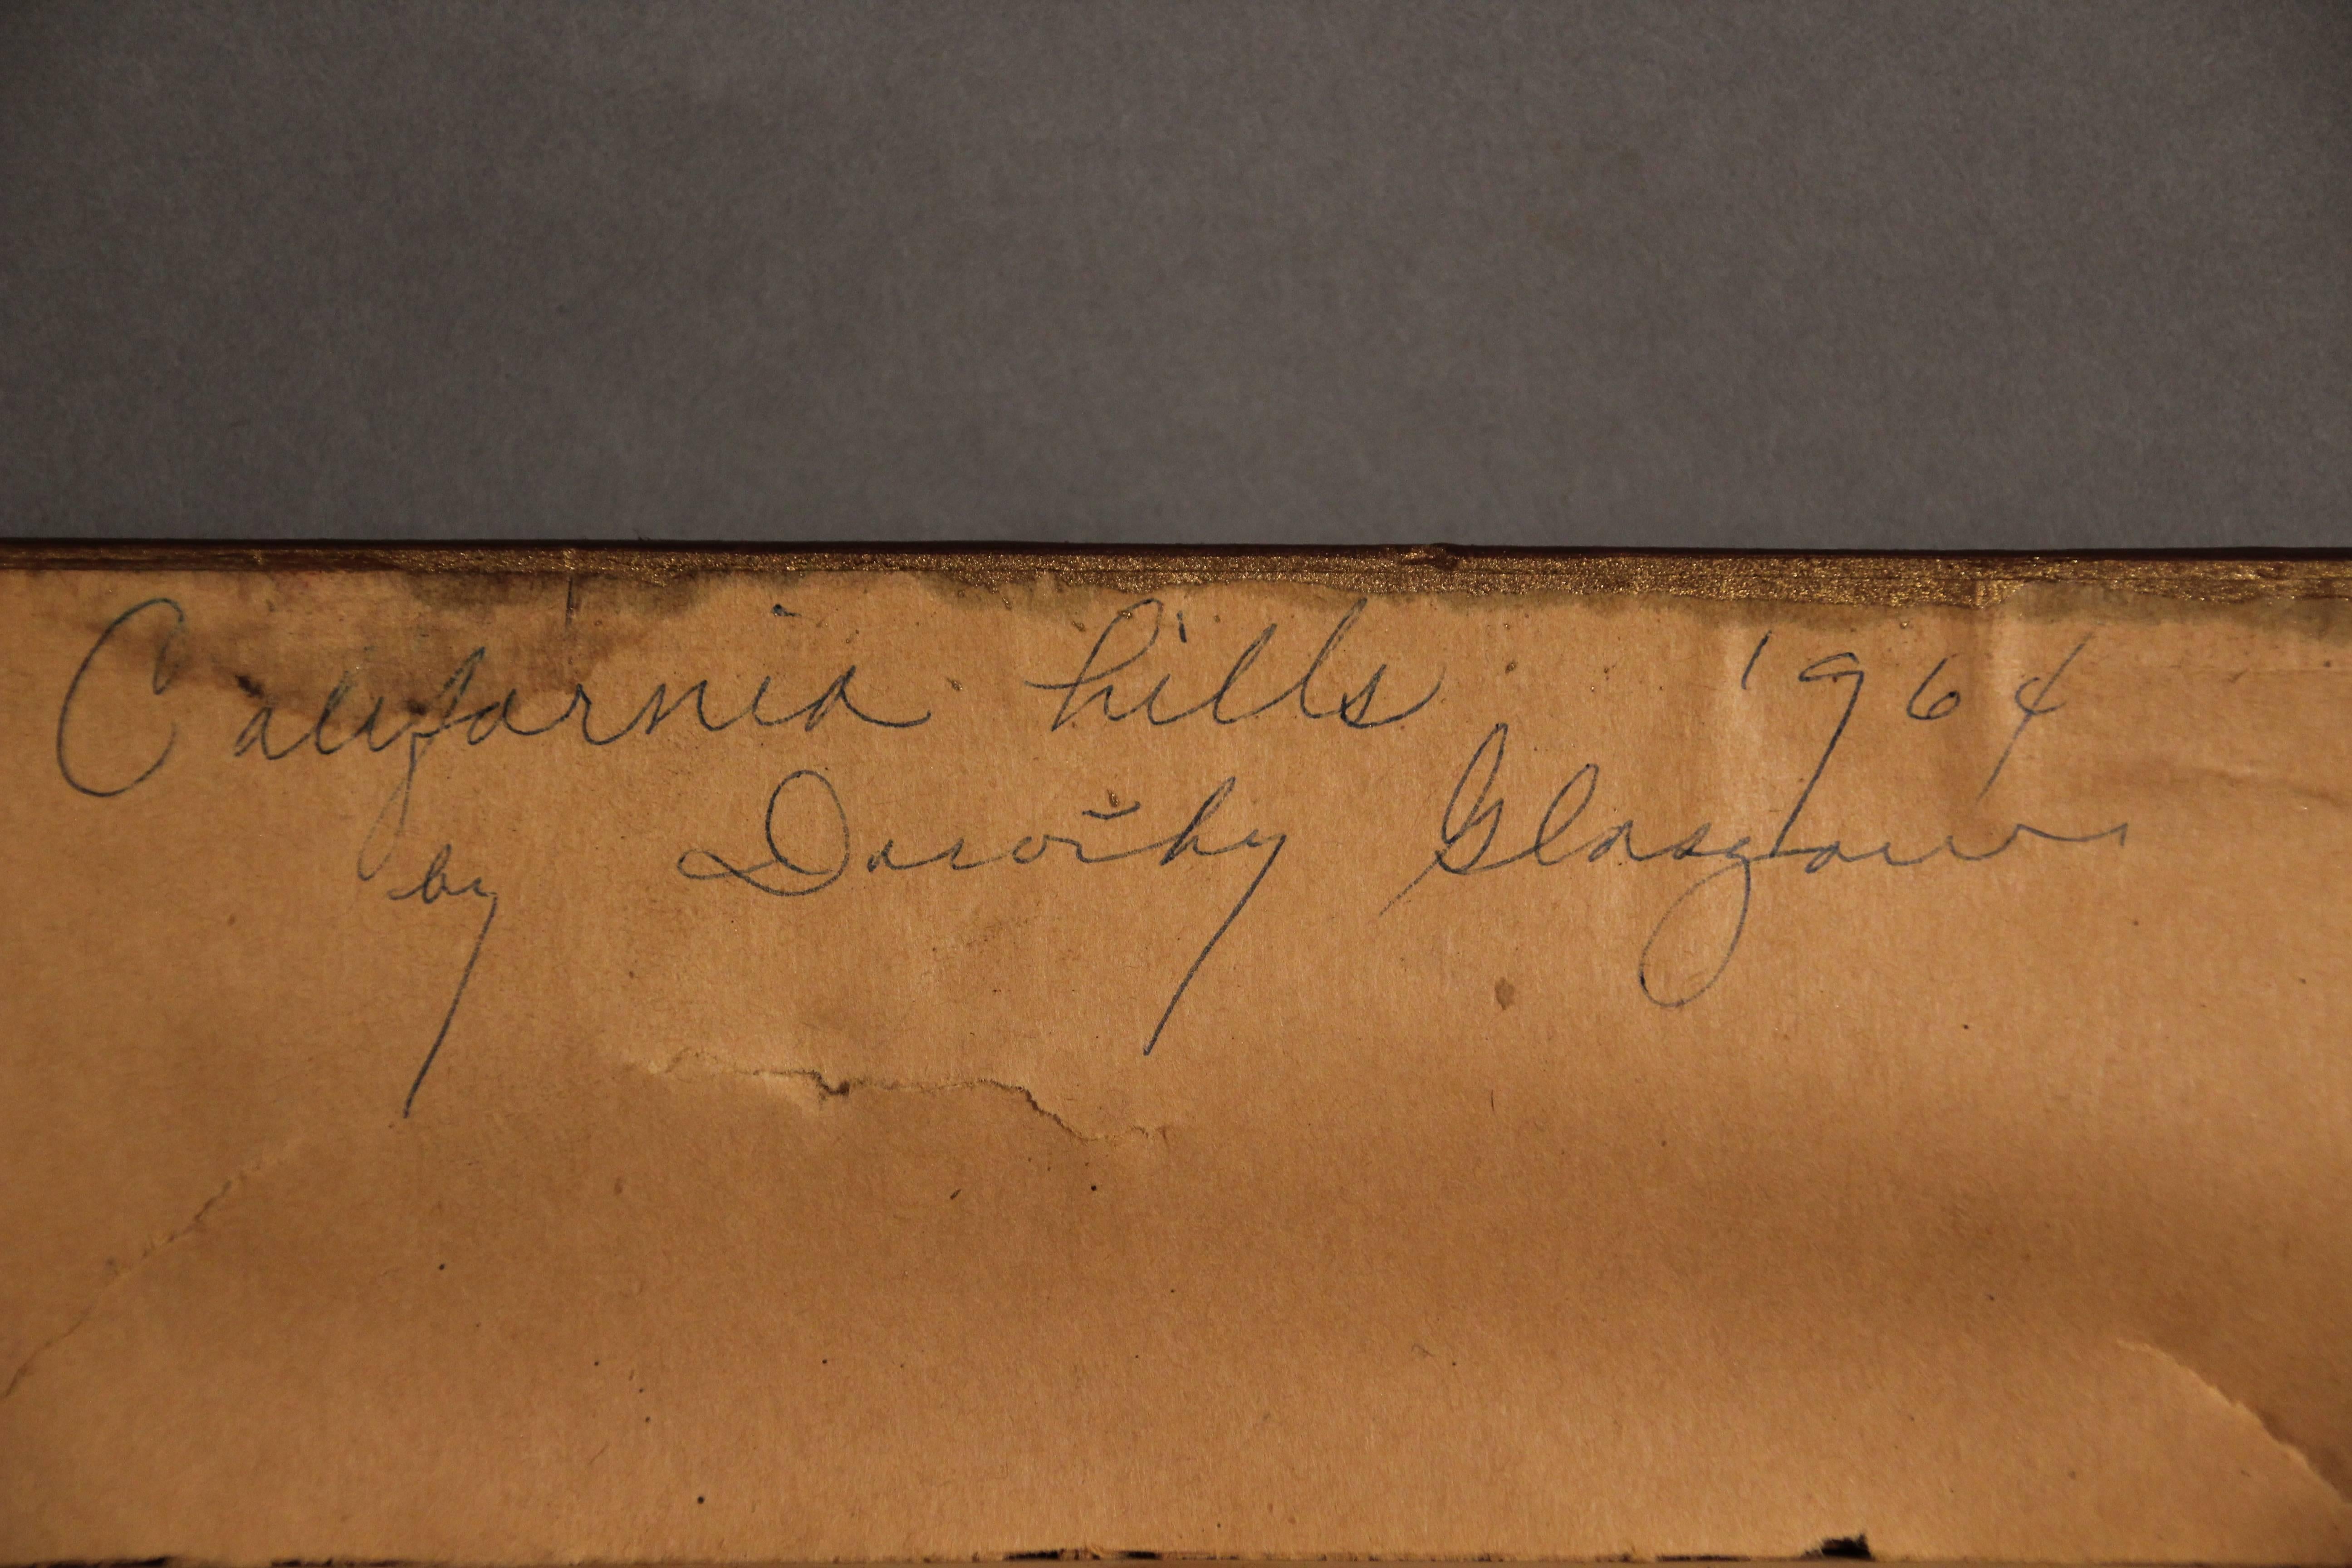 California hills 1964
by Dorothy Glasgow